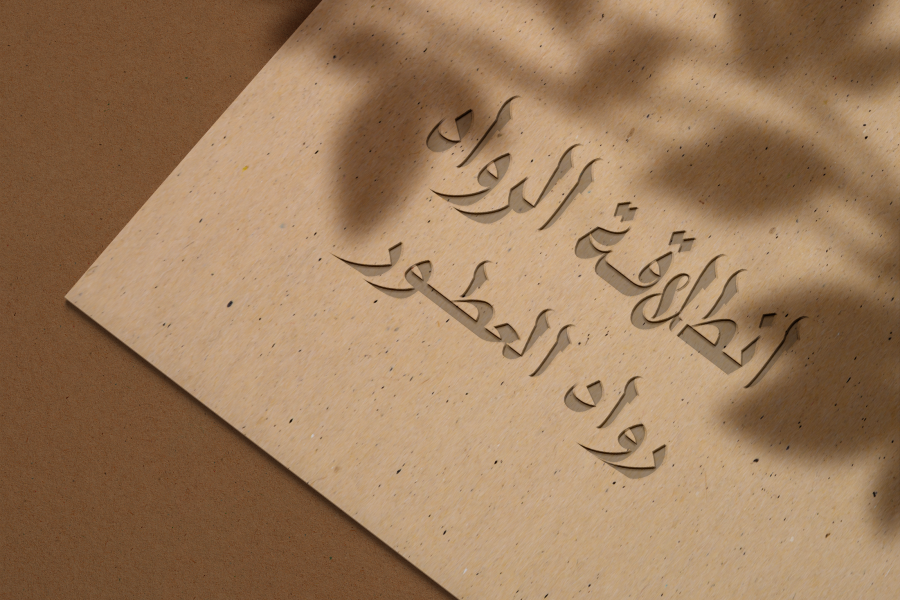 انطلاقة الرواد
رواد العطور